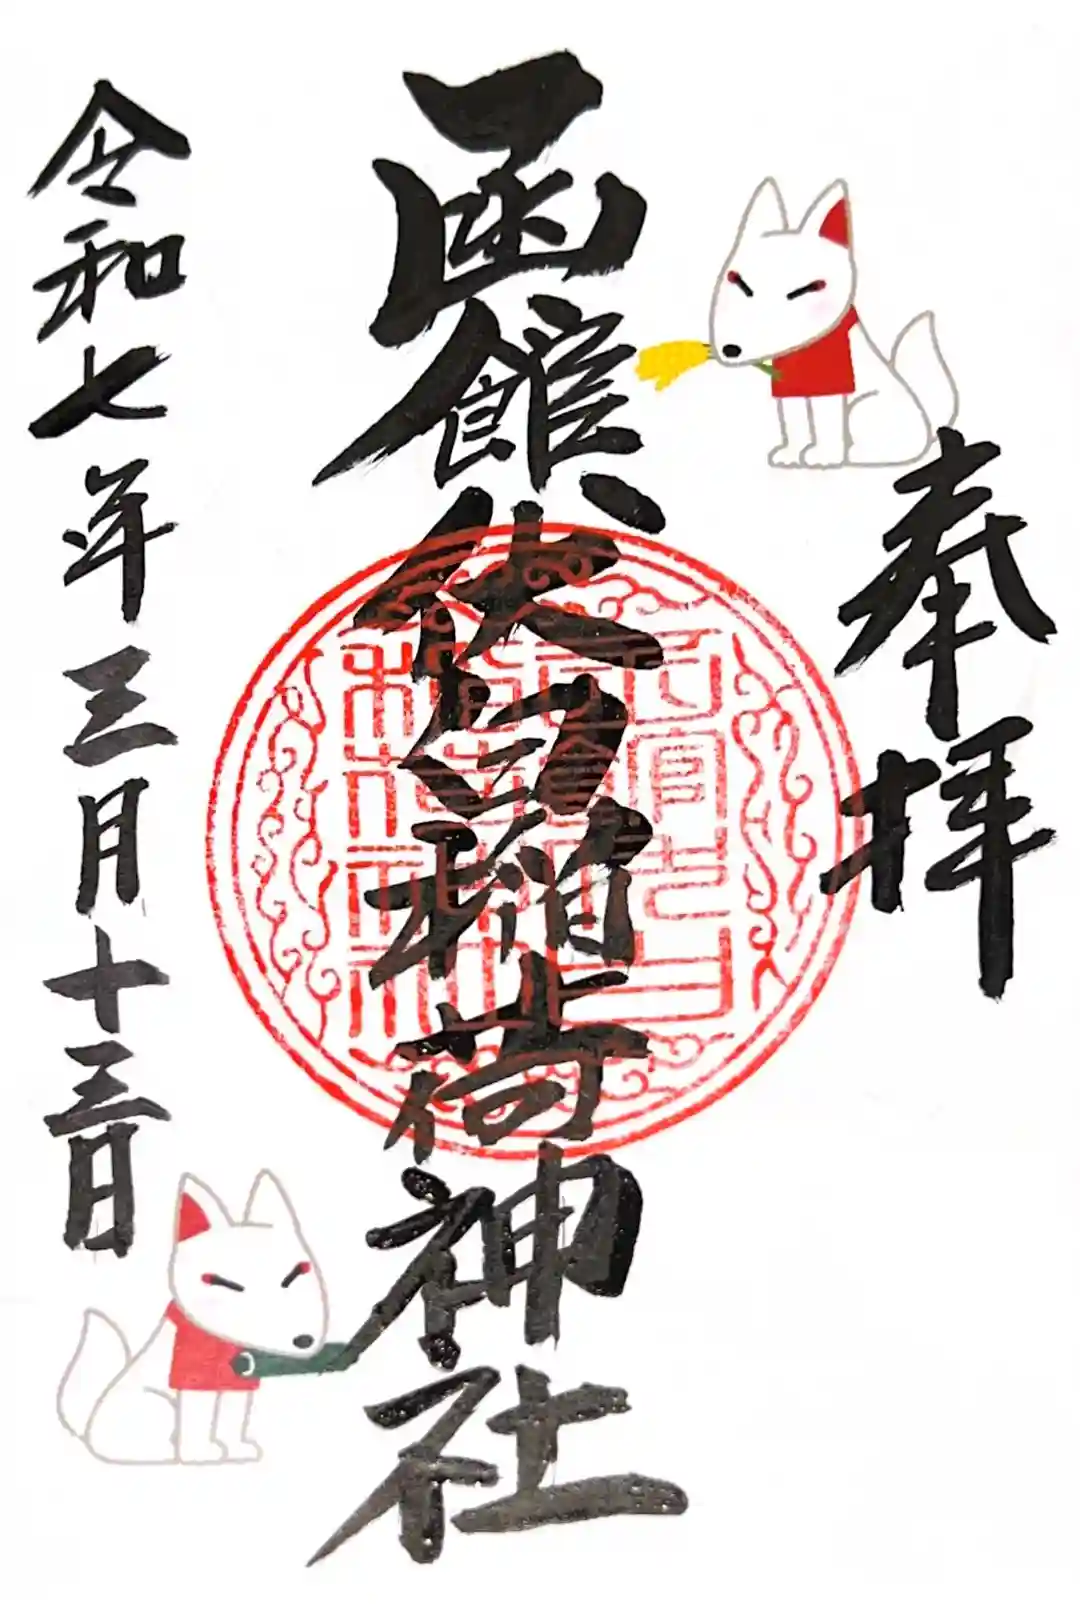 奉拝
函館伏白稲荷神社
令和七年三月十三日